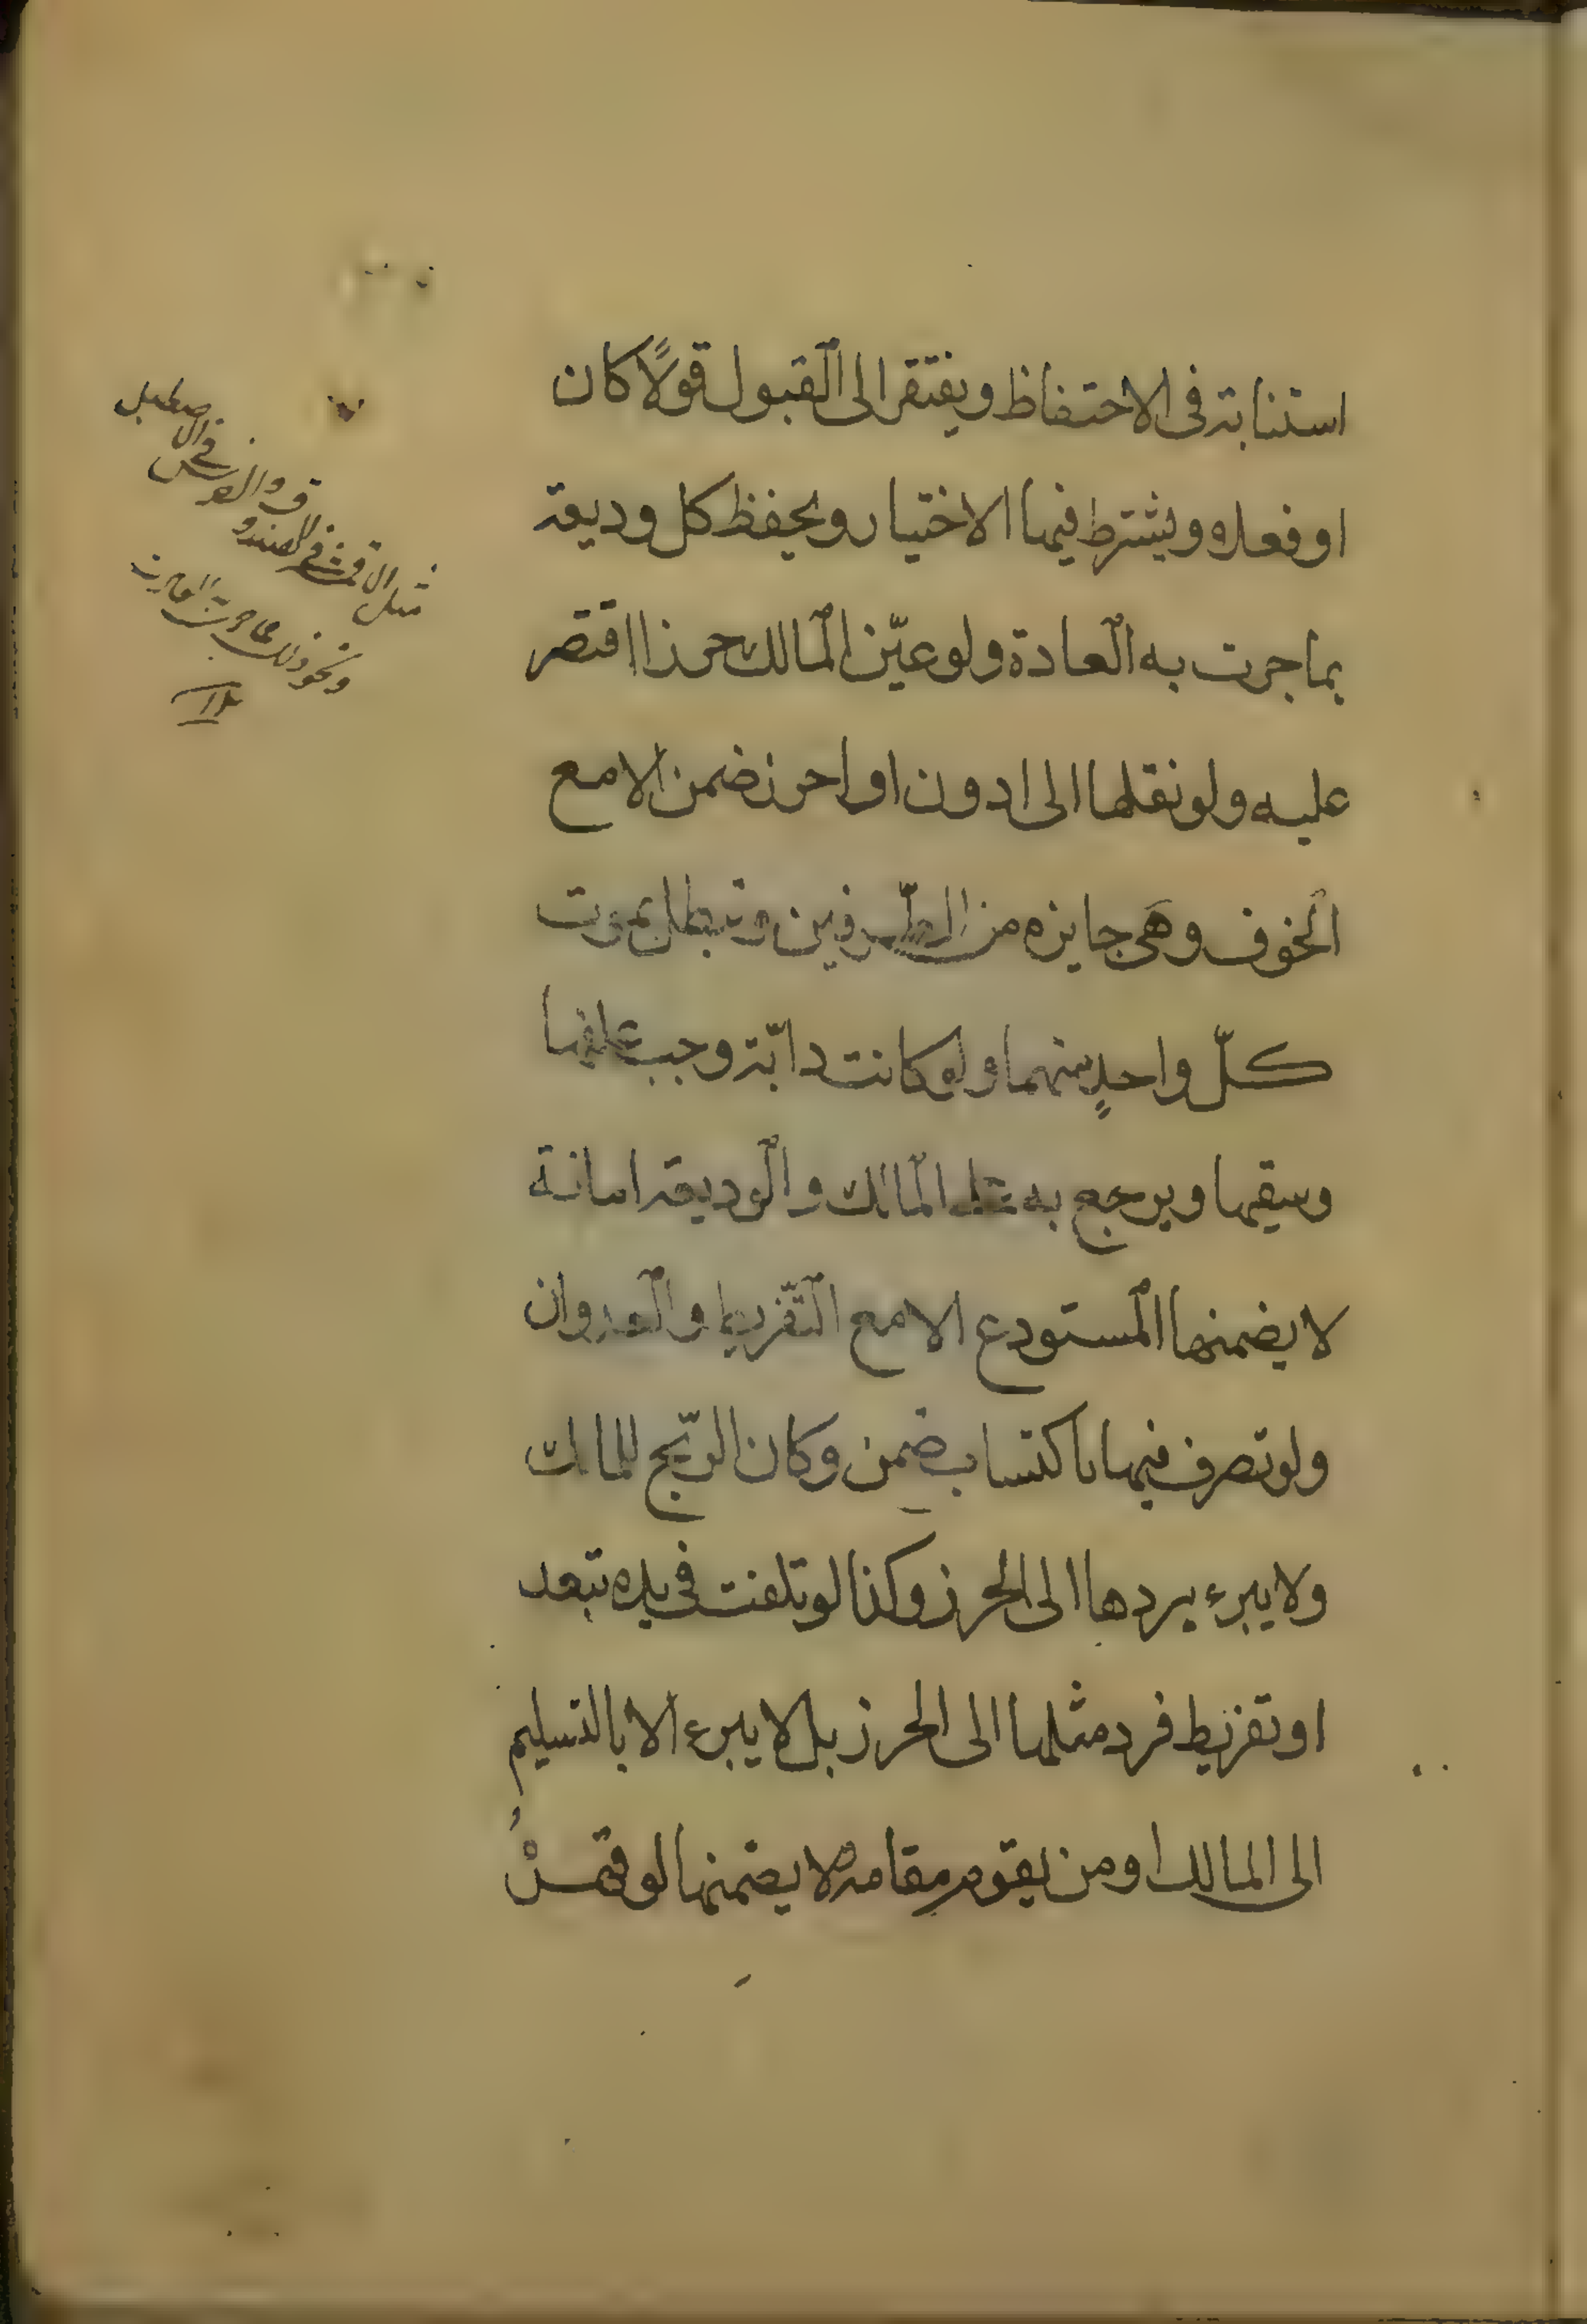 استنابة فى الاحتفاظ ويفتقر الى القبول قولًا كان
او فعلا ويشترط فيها الاختيار ويحفظ كل وديعة
بما جرت به العادة ولو عيّن المالك حرزا اقتصر
عليه ولو نقلها الى ادون او احرز ضمن الا مع
الخوف وهى جايزه من الطّرفين وتبطل بموت
كلّ واحدٍ منهما ولو كانت دابّة وجب علفها
وسقيها ويرجع به على المالك والوديعة امانة
لا يضمنها المستودع الا مع التّفريط والعدوان
ولو تصرف فيها باكتساب ضمن وكان الرّبح للمالك
ولا يبرء بردها الى الحرز وكذا لو تلفت فى يده بتعد
او تفريط فرد مثلها الى الحرز بل لا يبرء الا بالتسليم
الى المالك او من يقوم مقامه ولا يضمنها لو قهر
مثل الاقمشة فى الصندوق والفرس فى الاصطبل
ونحو ذلك مما جرت العادة
١٢